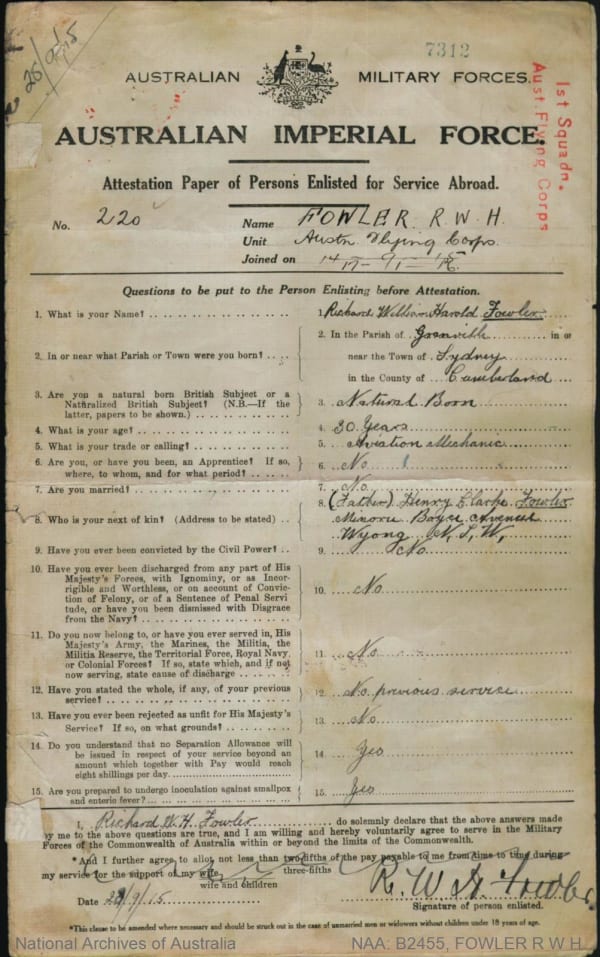 28/9/15
7312
AUSTRALIAN MILITARY FORCES.
1st Squadn.
Aust. Flying Corps
AUSTRALIAN IMPERIAL FORCE.
Attestation Paper of Persons Enlisted for Service Abroad.
No. 220 Name FOWLER R. W. H.
Unit Austn Flying Corps.
Joined on
Questions to be put to the Person Enlisting before Attestation.
1. What is your Name? 1. Richard William Harold Fowler
2. In or near what Parish or Town were you born? 2. In the Parish of Granville in or
near the Town of Sydney
in the County of Cumberland
3. Are you a natural born British Subject or a
Naturalized British Subject? (N.B.—If the
latter, papers to be shown.) 3. Natural Born
4. What is your age? 4. 30 Years
5. What is your trade or calling? 5. Aviation Mechanic
6. Are you, or have you been, an Apprentice? If so,
where, to whom, and for what period? 6. No
7. Are you married? 7. No
8. Who is your next of kin? (Address to be stated) 8. (Father) Henry Clarke Fowler
Minoru Boyce Avenue
Wyong N.S.W.
9. Have you ever been convicted by the Civil Power? 9. No
10. Have you ever been discharged from any part of His
Majesty's Forces, with Ignominy, or as Incor-
rigible and Worthless, or on account of Convic-
tion of Felony, or of a Sentence of Penal Servi
tude, or have you been dismissed with Disgrace
from the Navy? 10. No
11. Do you now belong to, or have you ever served in, His
Majesty's Army, the Marines, the Militia, the
Militia Reserve, the Territorial Force, Royal Navy,
or Colonial Forces? If so, state which, and if not
now serving, state cause of discharge 11. No
12. Have you stated the whole, if any, of your previous
service? 12. No previous service
13. Have you ever been rejected as unfit for His Majesty's
Service? If so, on what grounds? 13. No
14. Do you understand that no Separation Allowance will
be issued in respect of your service beyond an
amount which together with Pay would reach
eight shillings per day. 14. Yes
15. Are you prepared to undergo inoculation against smallpox
and enteric fever? 15. Yes
I, Richard W. H. Fowler do solemnly declare that the above answers made
by me to the above questions are true, and I am willing and hereby voluntarily agree to serve in the Military
Forces of the Commonwealth of Australia within or beyond the limits of the Commonwealth.
*And I further agree to allot not less than two-fifths of the pay payable to me from time to time during
three-fifths
my service for the support of my wife.
wife and children
R. W. H. Fowler
Date 28/9/15
Signature of person enlisted.
*This clause to be amended where necessary and should be struck out in the case of unmarried men or widowers without children under 18 years of age.
National Archives of Australia NAA: B2455, FOWLER R W H